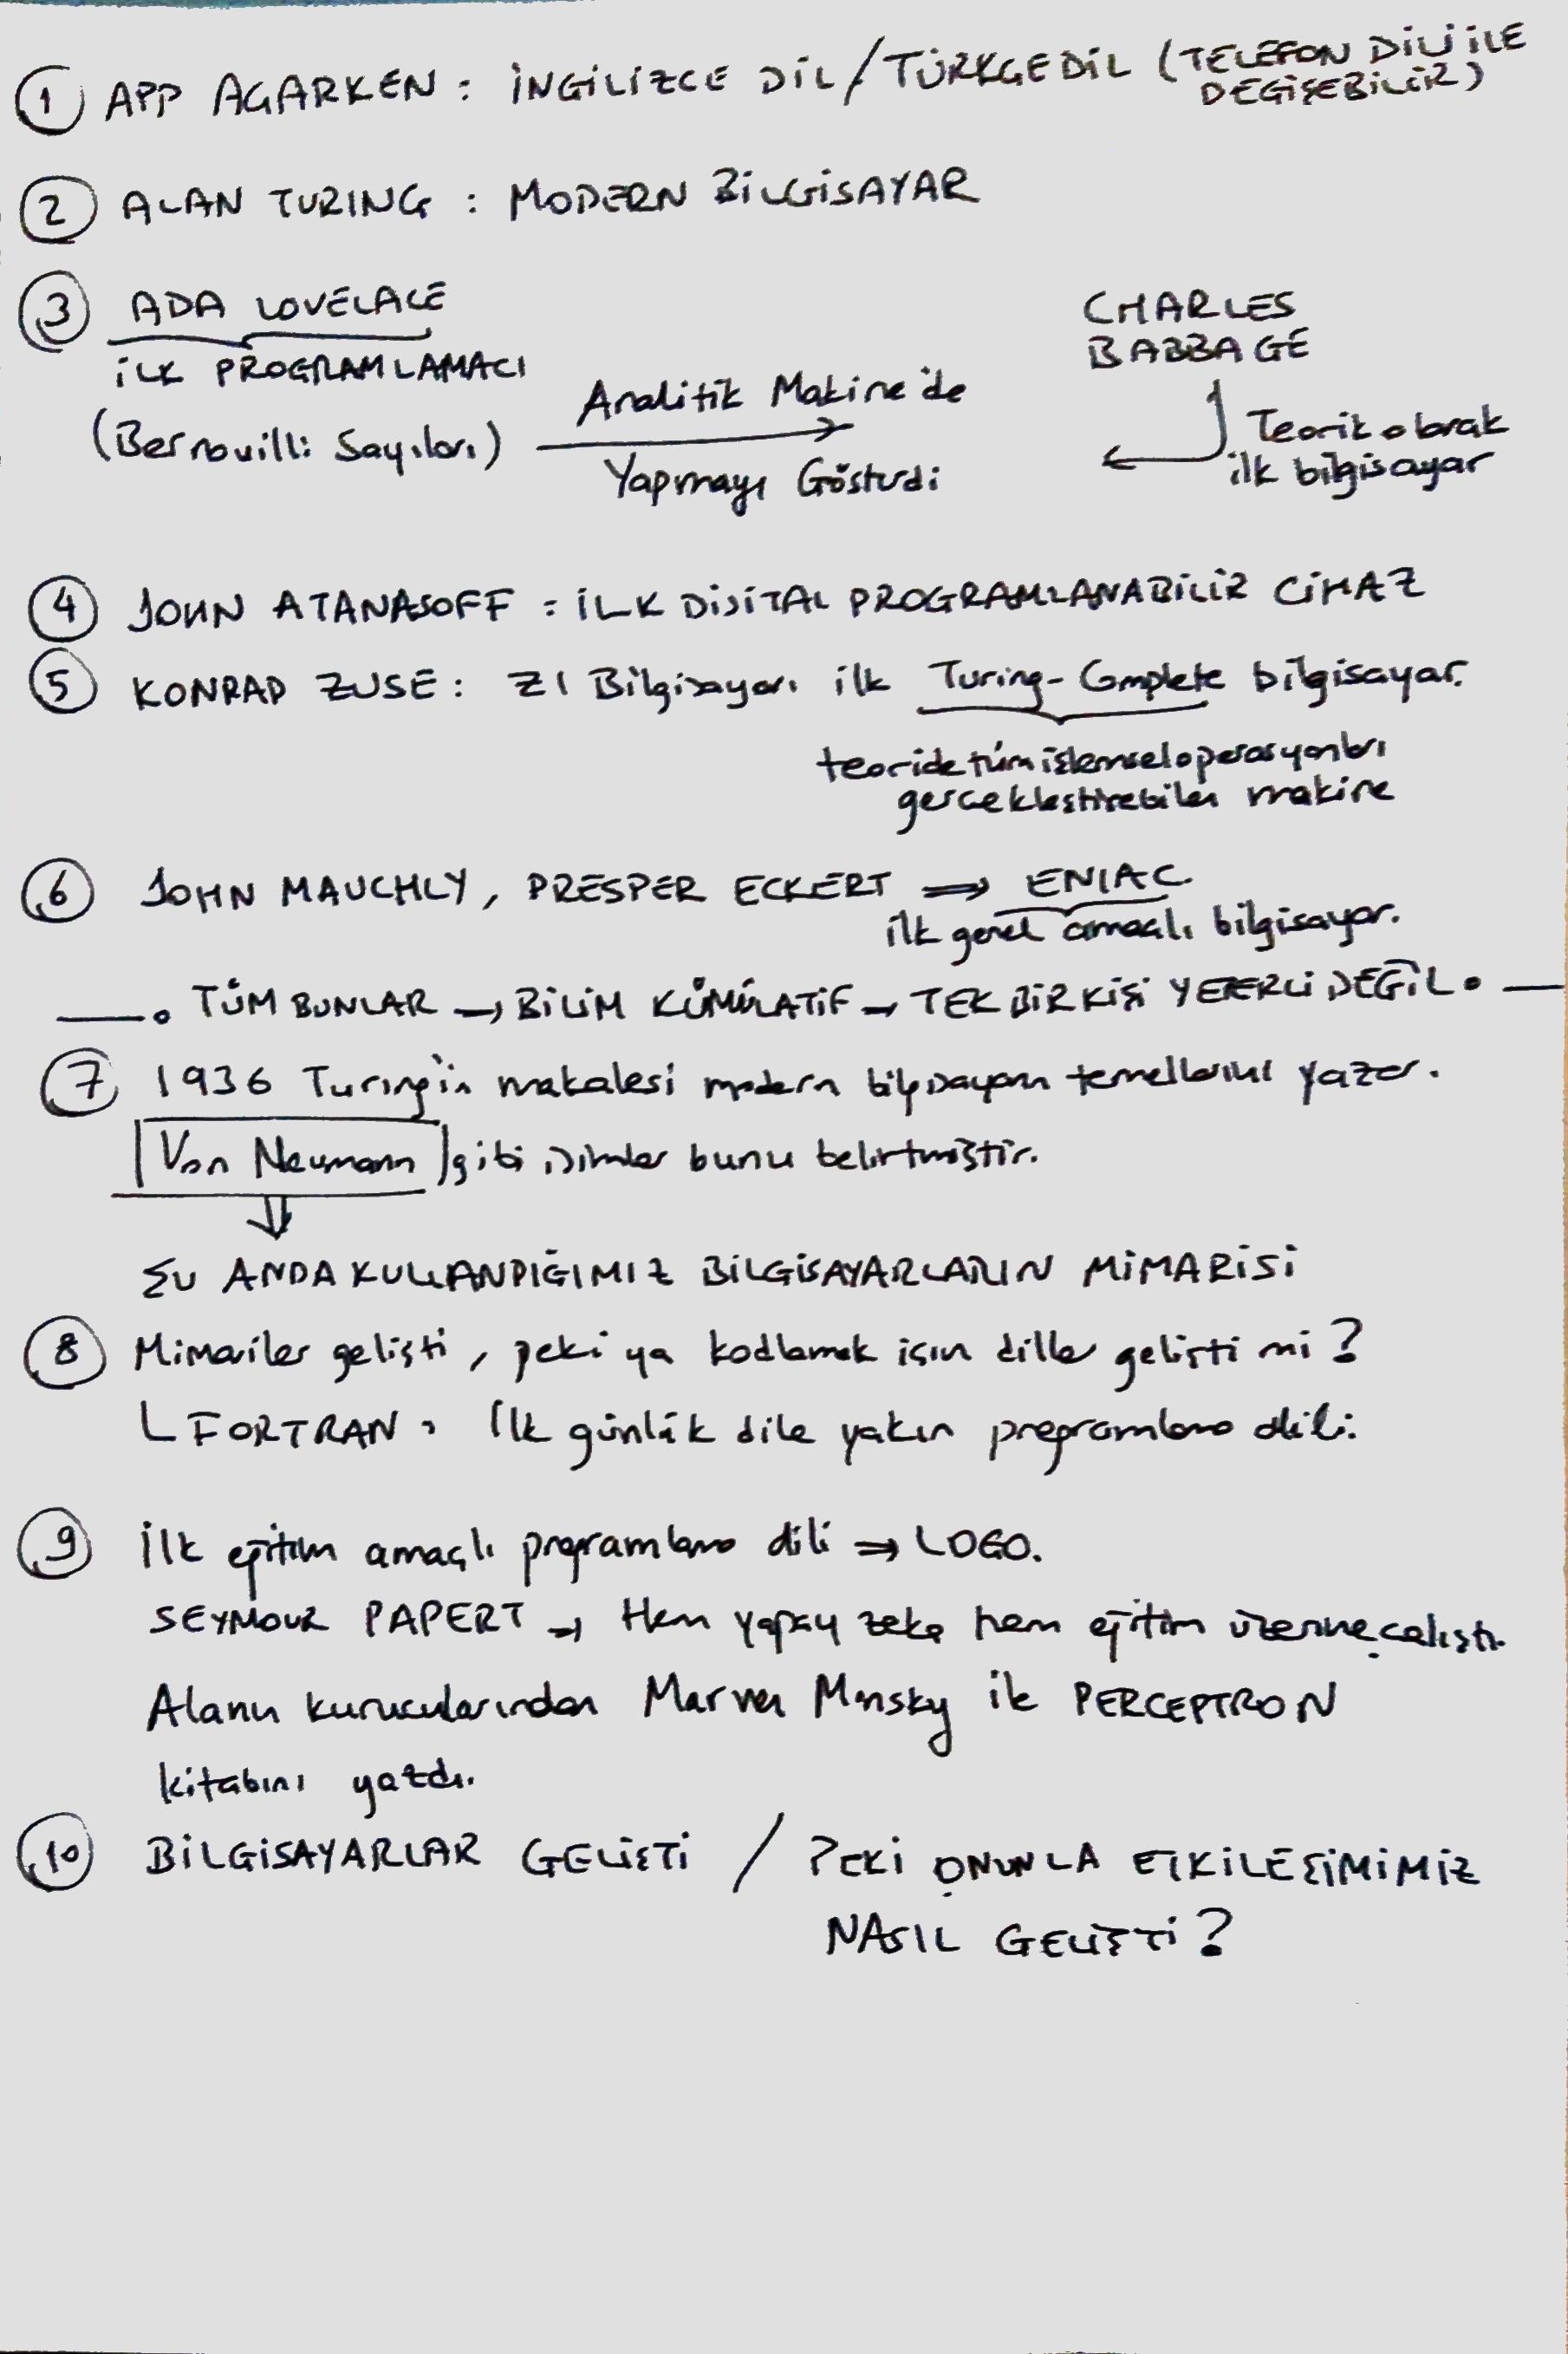 ① APP AÇARKEN : İNGİLİZCE DİL / TÜRKÇE DİL (TELEFON DİLİ İLE
DEĞİŞEBİLİR)
② ALAN TURING : MODERN BİLGİSAYAR
③ ADA LOVELACE
İLK PROGRAMLAMACI
(Bernouilli Sayıları)
Analitik Makine'de
Yapmayı Gösterdi
CHARLES
BABBAGE
Teorik olarak
ilk bilgisayar
④ JOHN ATANASOFF = İLK DİJİTAL PROGRAMLANABİLİR CİHAZ
⑤ KONRAD ZUSE : Z1 Bilgisayarı ilk Turing-Complete bilgisayar.
teoride tüm işlemsel operasyonları
gerçekleştirebilen makine
⑥ JOHN MAUCHLY, PRESPER ECKERT ⇒ ENIAC.
ilk genel amaçlı bilgisayar.
—. TÜM BUNLAR → BİLİM KÜMÜLATİF → TEK BİR KİŞİ YETERLİ DEĞİL. —
⑦ 1936 Turing'in makalesi modern bilgisayarın temellerini yazar.
Von Neumann gibi isimler bunu belirtmiştir.
⇓
ŞU ANDA KULLANDIĞIMIZ BİLGİSAYARLARIN MİMARİSİ
⑧ Mimariler gelişti, peki ya kodlamak için diller gelişti mi?
L FORTRAN : İlk günlük dile yakın programlama dili.
⑨ İlk eğitim amaçlı programlama dili ⇒ LOGO.
SEYMOUR PAPERT → Hem yapay zeka hem eğitim üzerine çalıştı.
Alanın kurucularından Marvin Minsky ile PERCEPTRON
kitabını yazdı.
⑩ BİLGİSAYARLAR GELİŞTİ / PEKİ ONUNLA ETKİLEŞİMİMİZ
NASIL GELİŞTİ?